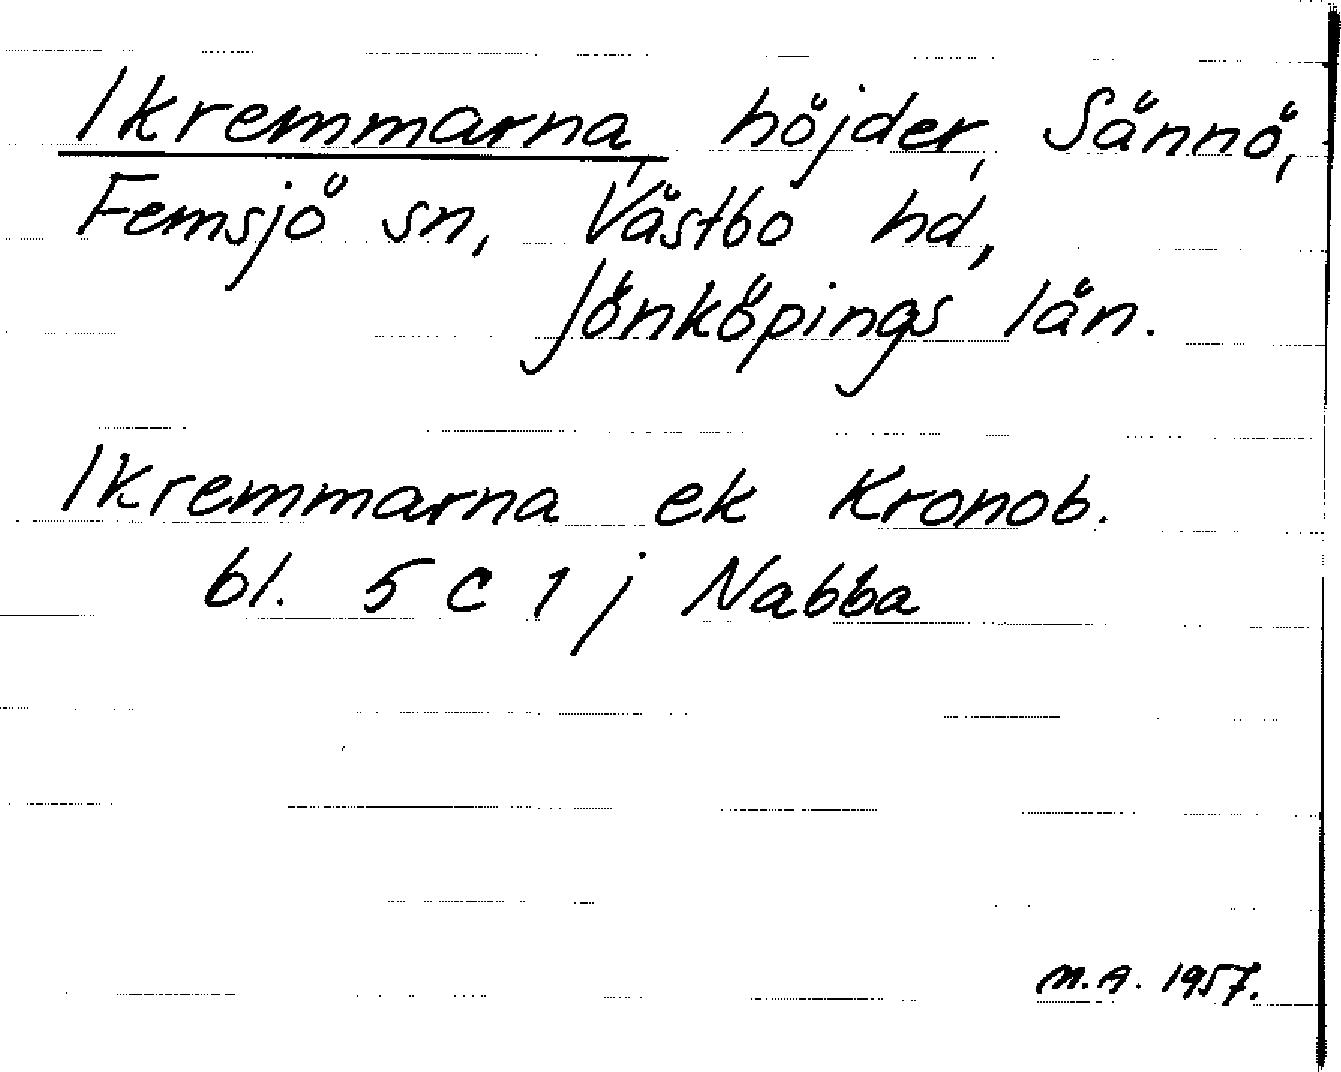 Ikremmarna, höjder, Sännö,
Femsjö sn, Västbo hd,
Jönköpings län.
Ikremmarna ek Kronob.
bl. 5 C 1 j Nabba
M.A. 1957.